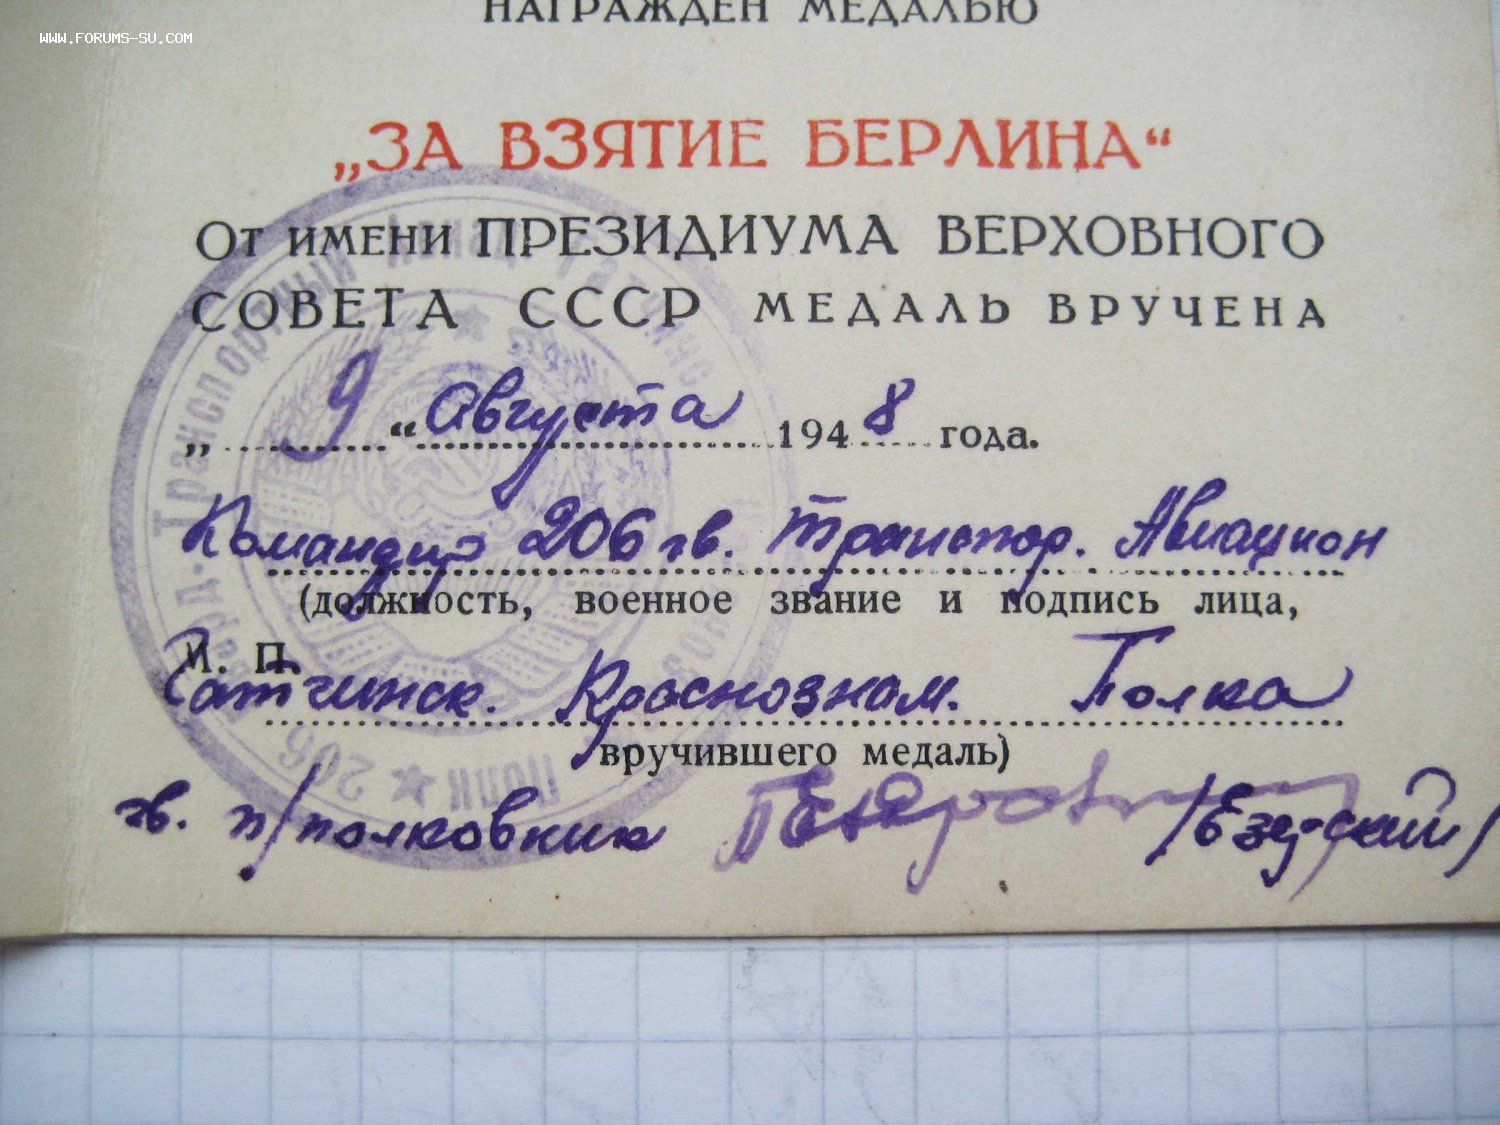 WWW.FORUMS-SU.COM
НАГРАЖДЕН МЕДАЛЬЮ
„ЗА ВЗЯТИЕ БЕРЛИНА“
От имени ПРЕЗИДИУМА ВЕРХОВНОГО
СОВЕТА СССР МЕДАЛЬ ВРУЧЕНА
„ 9 “ Августа 1948 года.
Командир 206 гв. Транспор. Авиацион
(должность, военное звание и подпись лица,
М. П.
Гатчинск. Краснознам. Полка
вручившего медаль)
гв. п/полковник /Езерский/
Транспортный Авиац. Гатчинск
Полк ★ 206